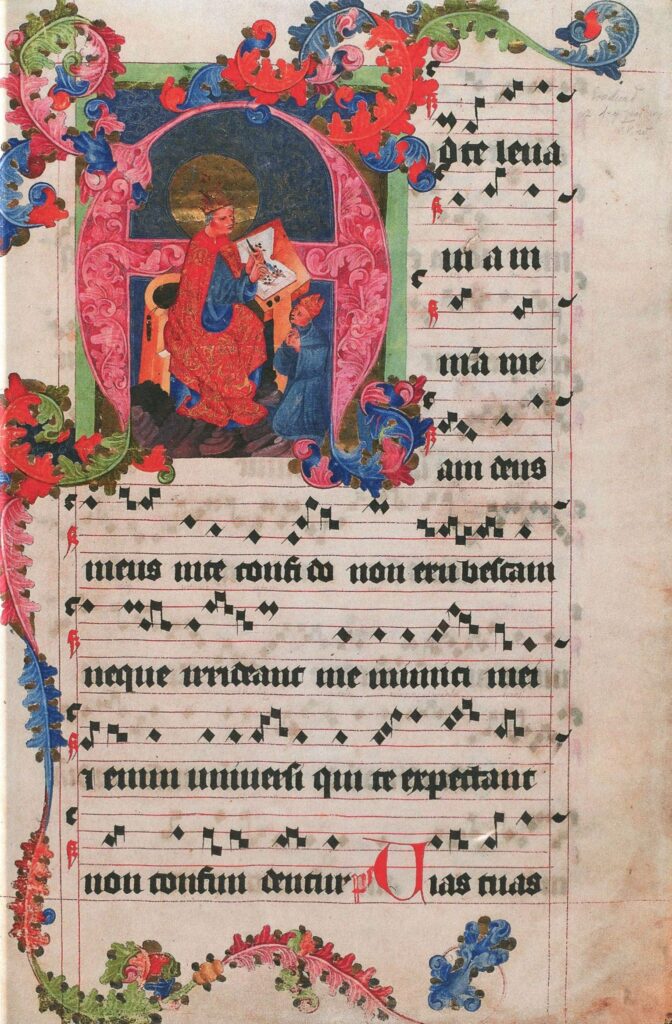 Ad te leua
ui a ni
mā me
am deus
meus in te confi do non eru bescam
neque irrideant me inimici mei
⁊ enim uniuersi qui te expectant
non confun dentur ps Uias tuas